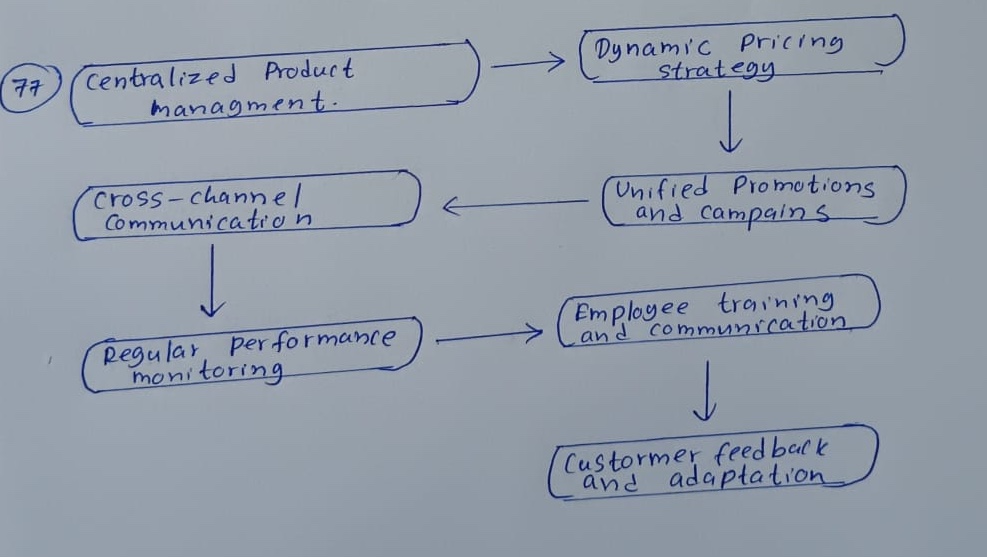 77
Centralized Product
managment.
Dynamic Pricing
strategy
Unified Promotions
and campains
Cross-channel
Communication
Regular performance
monitoring
Employee training
and communication
Custormer feedback
and adaptation